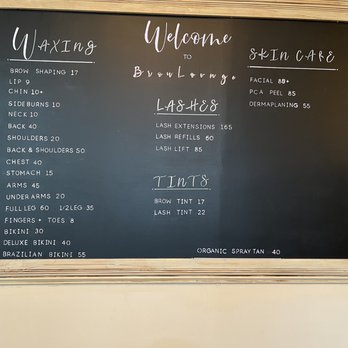 WAXING
BROW SHAPING 17
LIP 9
CHIN 10+
SIDEBURNS 10
NECK 10
BACK 40
SHOULDERS 20
BACK & SHOULDERS 50
CHEST 40
STOMACH 15
ARMS 45
UNDERARMS 20
FULL LEG 60 1/2 LEG 35
FINGERS + TOES 8
BIKINI 30
DELUXE BIKINI 40
BRAZILIAN BIKINI 55
Welcome
TO
BrowLounge
LASHES
LASH EXTENSIONS 165
LASH REFILLS 60
LASH LIFT 85
TINTS
BROW TINT 17
LASH TINT 22
SKIN CARE
FACIAL 85+
PCA PEEL 85
DERMAPLANING 55
ORGANIC SPRAY TAN 40